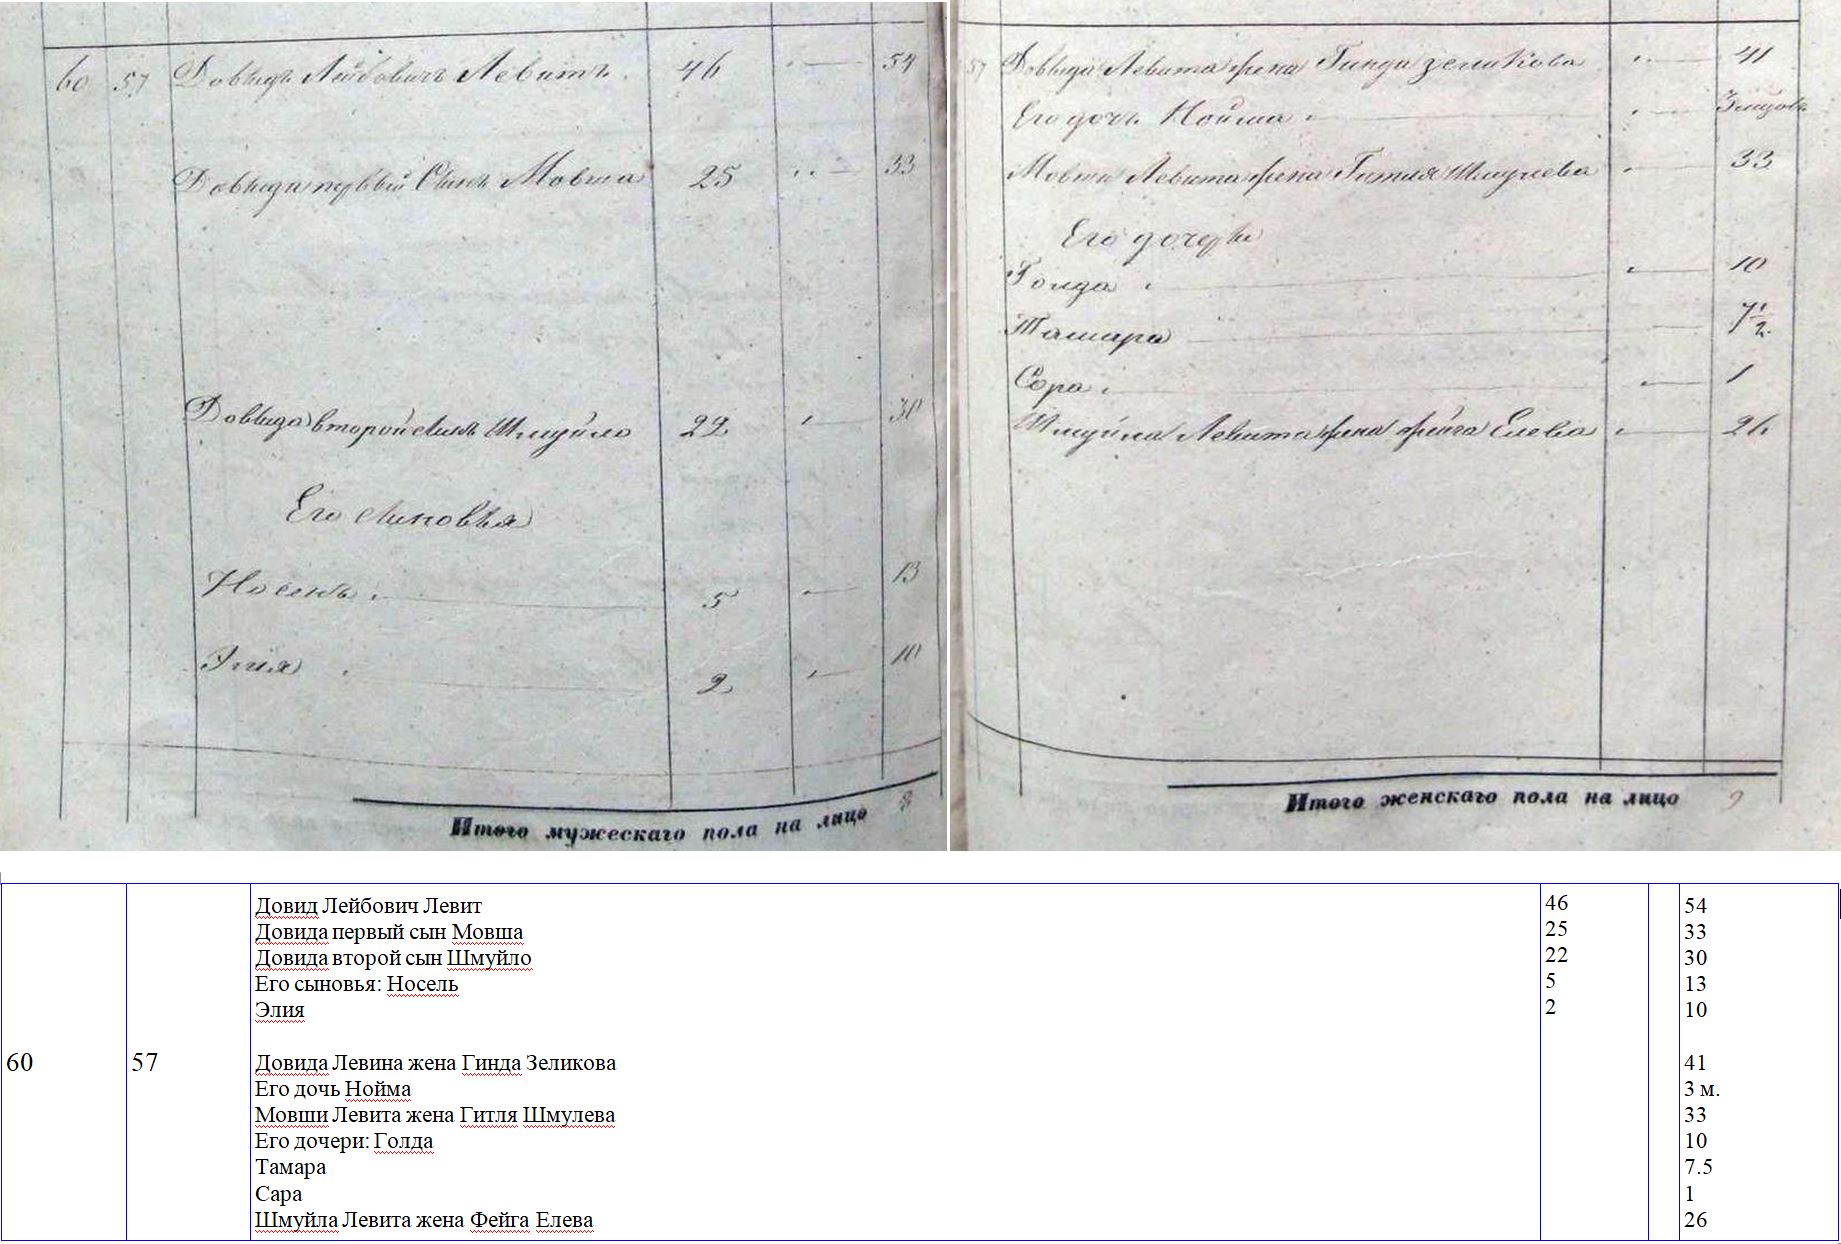 60 57 Довыдъ Лейбовичъ Левитъ. 46 54
Довыда первый Сынъ Мовша 25 33
Довыда второй сынъ Шмуйло 22 30
Его сыновья
Носель 5 13
Элия 2 10
Итого мужескаго пола на лицо 8
57 Довыда Левита жена Гинда Зеликова 41
Его дочь Нойма 3 месяцовъ
Мовши Левита жена Гитля Шмулева 33
Его дочери
Голда 10
Тамара 7 1/2
Сора 1
Шмуйла Левита жена Фейга Елева 26
Итого женскаго пола на лицо 9
Довид Лейбович Левит 46 54
Довида первый сын Мовша 25 33
Довида второй сын Шмуйло 22 30
Его сыновья: Носель 5 13
Элия 2 10
60 57 Довида Левина жена Гинда Зеликова 41
Его дочь Нойма 3 м.
Мовши Левита жена Гитля Шмулева 33
Его дочери: Голда 10
Тамара 7.5
Сара 1
Шмуйла Левита жена Фейга Елева 26